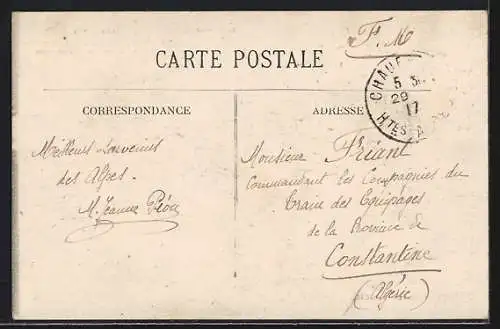 F. M
CARTE POSTALE
CHAUF
5
29
17
HTES A
CORRESPONDANCE
ADRESSE
Meilleurs souvenirs
des Alpes.
M. Jeanne
Monsieur Friant
Commandant les Compagnies du
Train des Equipages
de la Province de
Constantine
(Algérie)